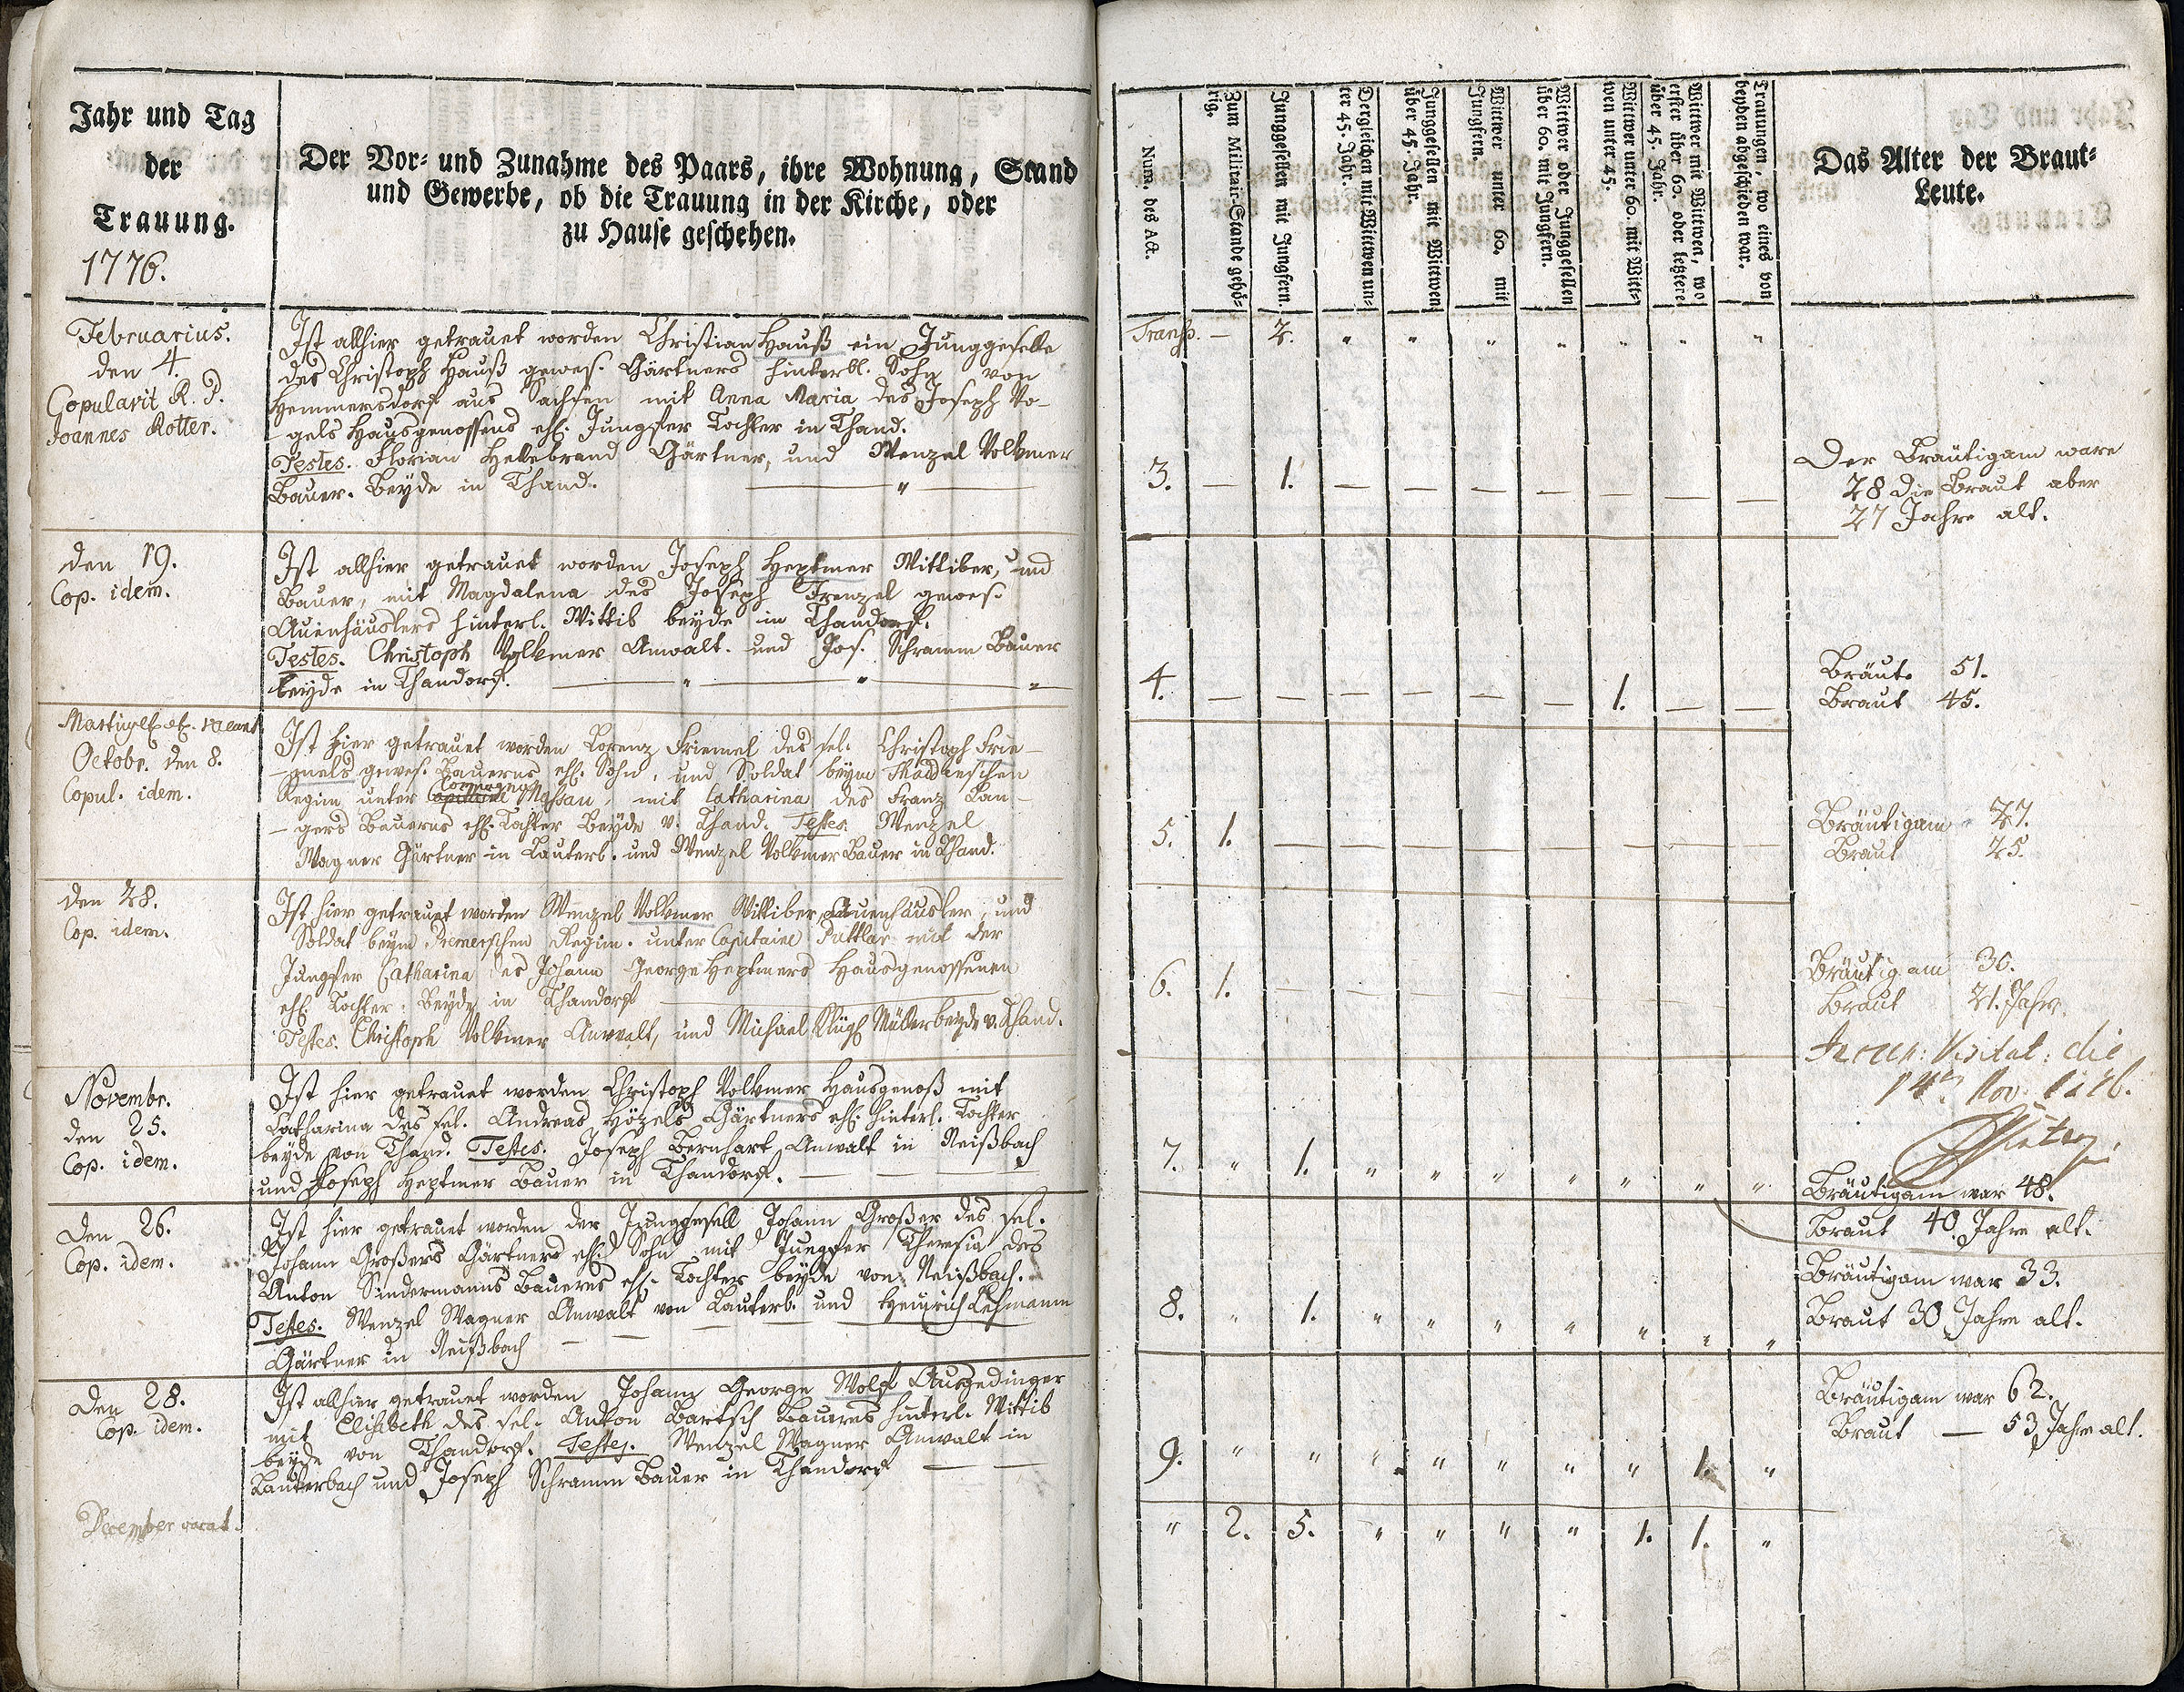 Jahr und Tag
der
Trauung.
1776.
Der Vor- und Zunahme des Paars, ihre Wohnung, Stand
und Gewerbe, ob die Trauung in der Kirche, oder
zu Hause geschehen.
Februarius.
den 4.
Copulavit R. D.
Joannes Rotter.
Ist allhier getrauet worden Christian Hauß ein Junggeselle
des Christoph Hauß gewes. Gärtners hinterbl. Sohn von
Hemmersdorf aus Sachsen mit Anna Maria des Joseph Vo-
gels Hausgenossens ehl. Jungfer Tochter in Thand.
Testes. Florian Hellebrand Gärtner, und Wenzel Volkmer
Bauer. Beyde in Thand.
den 19.
Cop. idem.
Ist allhier getrauet worden Joseph Heptner Wittiber, und
Bauer, mit Magdalena des Joseph Frenzel gewes.
Auenhäuslers hinterl. Wittib beyde in Thandorf.
Testes. Christoph Volkmer Anwalt. und Jos. Schramm Bauer
beyde in Thandorf.
Octobr. den 8.
Copul. idem.
Ist hier getrauet worden Lorenz Friemel des sel. Christoph Frie-
-mels gewes. Bauerns ehl. Sohn, und Soldat beym
Regim. unter Compagnie Massau, mit Catharina des Franz Lan-
-gers Bauerns ehl. Tochter Beyde v. Thand. Testes. Wenzel
Wagner Gärtner in Lauterb. und Wenzel Volkmer Bauer in Thand.
den 28.
Cop. idem.
Ist hier getrauet worden Wenzel Volkmer Wittiber, Auenhäusler, und
Soldat beym Regim. unter Capitaine Puttlar mit der
Jungfer Catharina des Johann George Heptners Hausgenossenen
ehl. Tochter. Beyde in Thandorf
Testes. Christoph Volkmer Anwalt, und Michael Müller beyde v. Thand.
Novembr.
den 25.
Cop. idem.
Ist hier getrauet worden Christoph Volkmer Hausgenoß mit
Catharina des sel. Andreas Hözels Gärtners ehl. hinterl. Tochter
beyde von Thand. Testes. Joseph Bernhart Anwalt in Neißbach
und Joseph Heptner Bauer in Thandorf.
Den 26.
Cop. idem.
Ist hier getrauet worden der Junggesell Johann Großer des sel.
Johann Großers Gärtners ehl. Sohn mit Jungfer Theresia des
Anton Sindermanns Bauerns ehl. Tochter beyde von Neißbach.
Testes. Wenzel Wagner Anwalt von Lauterb. und Heinrich Lehmann
Gärtner in Neißbach
Den 28.
Cop. idem.
Ist allhier getrauet worden Johann George Wolf Ausgedinger
mit Elisabeth des sel. Anton Bartsch Bauerns hinterl. Wittib
beyde von Thandorf. Testes. Wenzel Wagner Anwalt in
Lauterbach und Joseph Schramm Bauer in Thandorf
December vacat.
Num. des Act.
Zum Militair-Stande gehö-
rig.
Junggesellen mit Jungfern.
Dergleichen mit Wittwen un-
ter 45. Jahr.
Junggesellen mit Wittwen
über 45. Jahr.
Wittwer unter 60. mit
Jungfern.
Wittwer oder Junggesellen
über 60. mit Jungfern.
Wittwer unter 60. mit Witt-
wen unter 45.
Wittwer mit Wittwen, wo
erster über 60. oder letztere
über 45. Jahr.
Trauungen, wo eines von
beyden abgeschieden war.
Das Alter der Braut-
Leute.
Transp. — 2. " " " " " " "
3. — 1. — — — — — — —
Der Bräutigam ware
28 die Braut aber
27 Jahre alt.
4. — — — — — — 1. — —
Bräut. 51.
Braut 45.
5. 1. — — — — — — — —
Bräutigam 27.
Braut 25.
6. 1. — — — — — — — —
Bräutigam 30.
Braut 21. Jahr.
7. " 1. " " " " " " "
Bräutigam war 48.
Braut 40 Jahre alt.
8. " 1. " " " " " " "
Bräutigam war 33.
Braut 30 Jahre alt.
9. " " " " " " " 1. "
Bräutigam war 62.
Braut — 53 Jahre alt.
" 2. 5. " " " " 1. 1. "